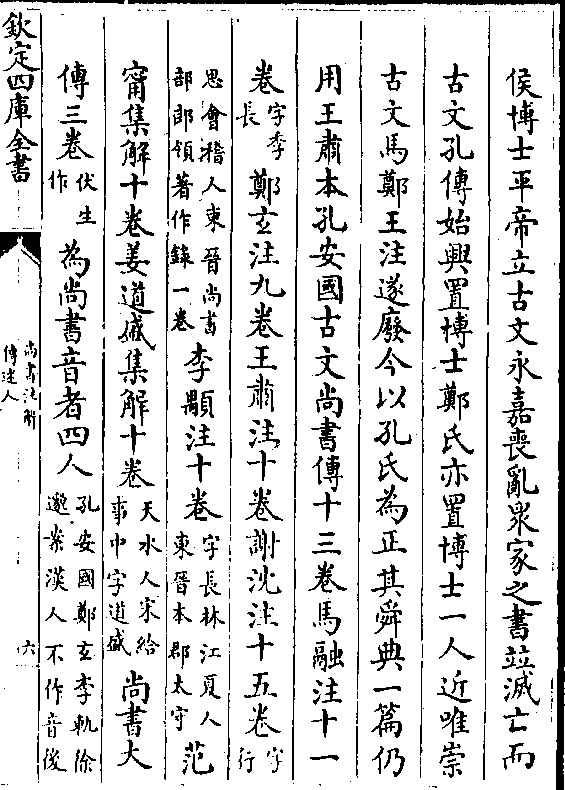 侯博士平帝立古文永嘉喪亂衆家之書並滅亡而
古文孔傳始興置博士鄭氏亦置博士一人近唯崇
古文馬鄭王注遂廢今以孔氏為正其舜典一篇仍
用王肅本孔安國古文尚書傳十三卷馬融注十一
卷字季長鄭玄注九卷王肅注十卷謝沈注十五卷字行
思會稽人東晉尚書部郎領著作錄一卷李顒注十卷字長林江夏人東晉本郡太守范
甯集解十卷姜道盛集解十卷天水人宋給事中字道盛尚書大
傳三卷伏生作為尚書音者四人孔安國鄭玄李軌徐邈案漢人不作音後
欽定四庫全書
尚書注解
傳述人
六